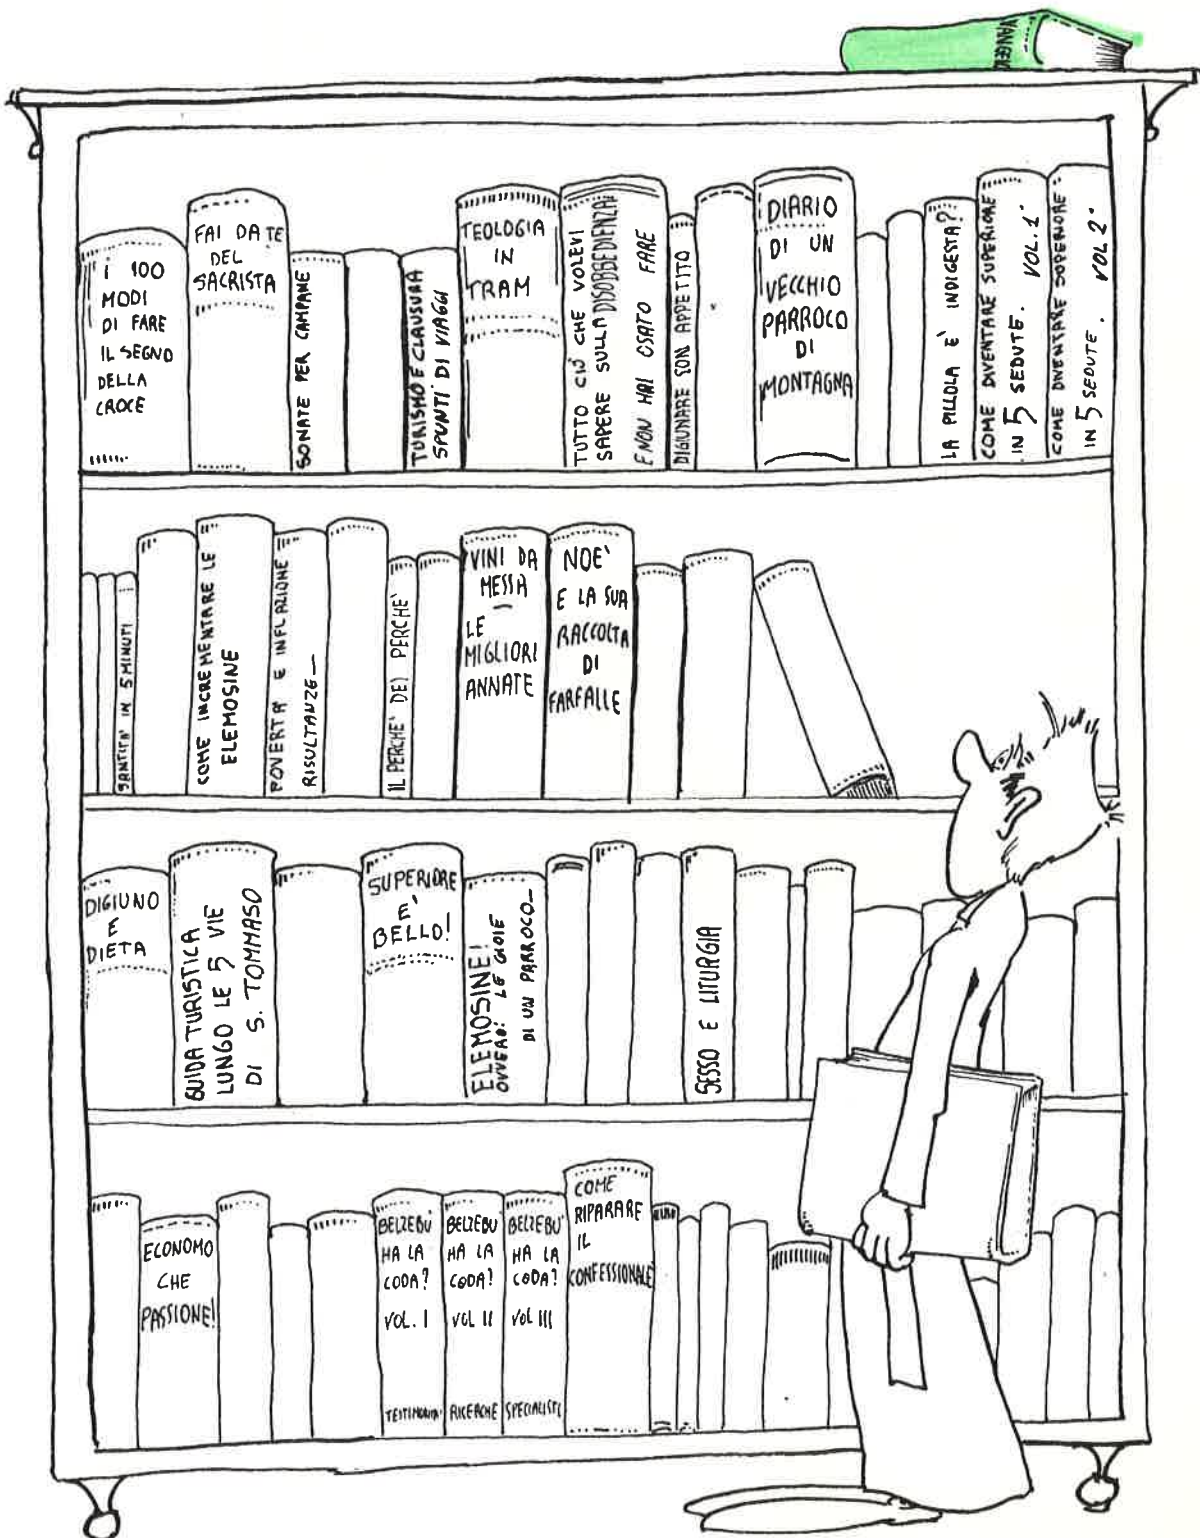 VANGELO
i 100
MODI
DI FARE
IL SEGNO
DELLA
CROCE
FAI DA TE
DEL
SACRISTA
SONATE PER CAMPANE
TURISMO E CLAUSURA
SPUNTI DI VIAGGI
TEOLOGIA
IN
TRAM
TUTTO CIÒ CHE VOLEVI
SAPERE SULLA DISOBBEDIENZA
E NON HAI OSATO FARE
DIGIUNARE CON APPETITO
DIARIO
DI UN
VECCHIO
PARROCO
DI
MONTAGNA
LA PILLOLA E' INDIGESTA?
COME DIVENTARE SUPERIORE
IN 5 SEDUTE. VOL. 1°
COME DIVENTARE SUPERIORE
IN 5 SEDUTE. VOL 2°
SANTITA' IN 5 MINUTI
COME INCREMENTARE LE
ELEMOSINE
POVERTA' E INFLAZIONE
RISULTANZE
IL PERCHE' DEI PERCHE'
VINI DA
MESSA
LE
MIGLIORI
ANNATE
NOE'
E LA SUA
RACCOLTA
DI
FARFALLE
DIGIUNO
E
DIETA
GUIDA TURISTICA
LUNGO LE 5 VIE
DI S. TOMMASO
SUPERIORE
E'
BELLO!
ELEMOSINE!
OVVERO: LE GIOIE
DI UN PARROCO
SESSO E LITURGIA
ECONOMO
CHE
PASSIONE!
BELZEBU'
HA LA
CODA?
VOL. I
TESTIMONIA
BELZEBU
HA LA
CODA?
VOL II
RICERCHE
BELZEBU'
HA LA
CODA?
VOL III
SPECIALISTI
COME
RIPARARE
IL
CONFESSIONALE